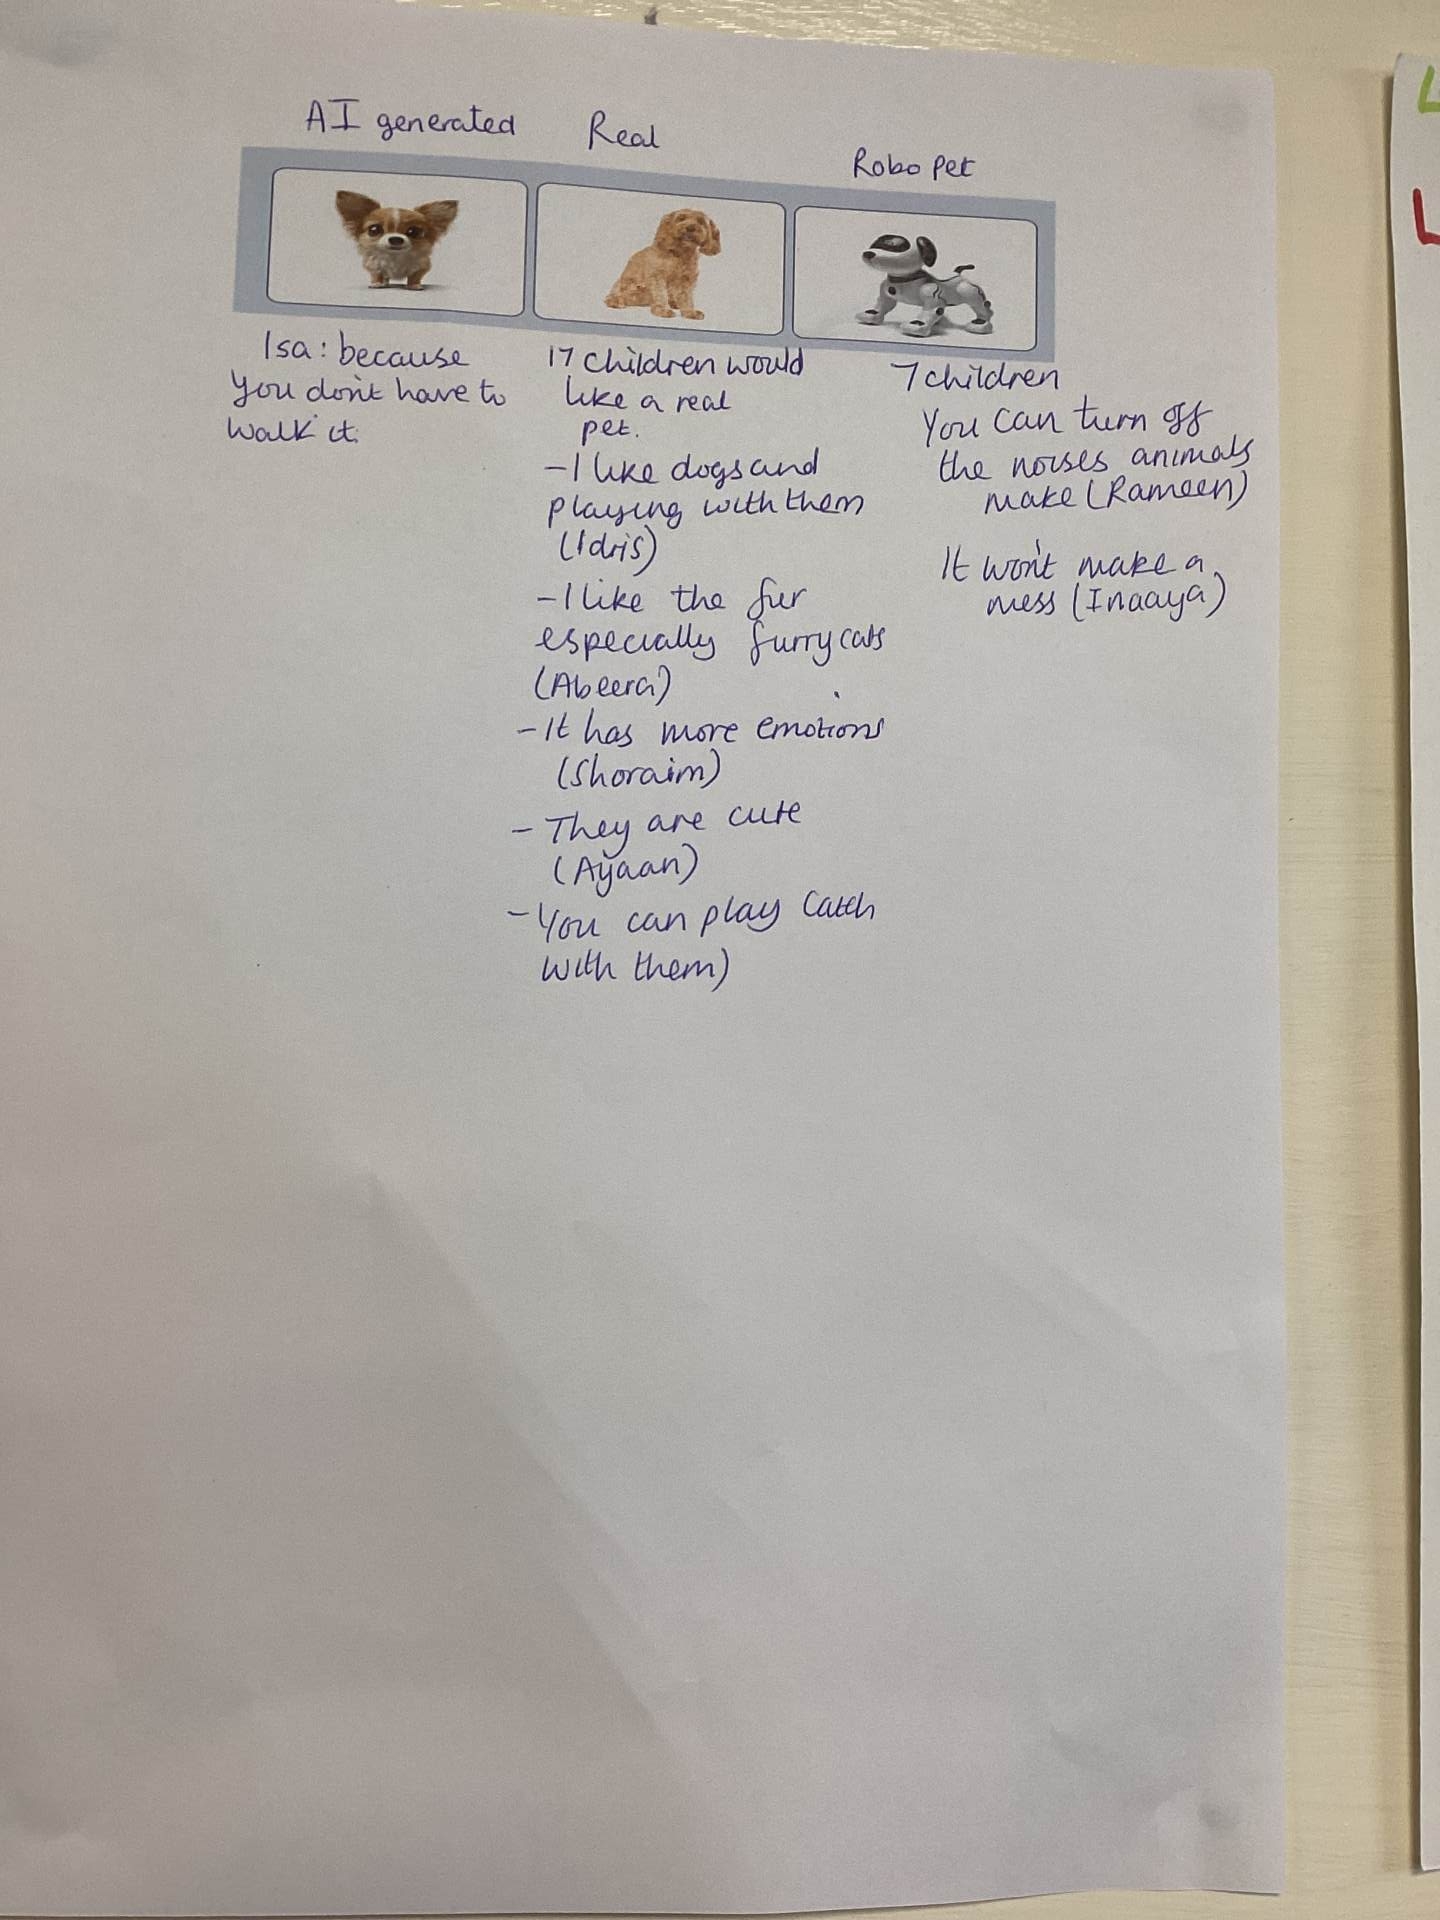 AI generated
Real
Robo pet
Isa: because
you don't have to
walk it.
17 children would
like a real
pet.
- I like dogs and
playing with them
(Idris)
- I like the fur
especially furry cats
(Abeera)
- It has more emotions
(Shoraim)
- They are cute
(Ayaan)
- You can play catch
with them)
7 children
You can turn off
the noises animals
make (Rameen)
It won't make a
mess (Inaaya)